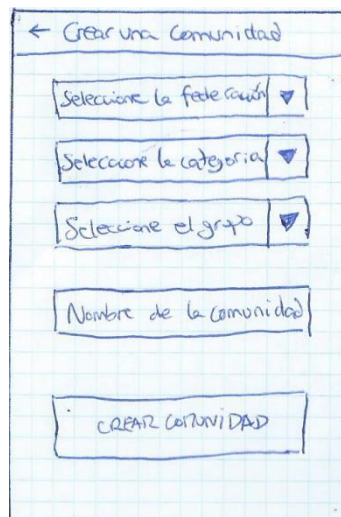 ← Crear una Comunidad
Seleccione la federación
Seleccione la categoria
Seleccione el grupo
Nombre de la comunidad
CREAR COMUNIDAD